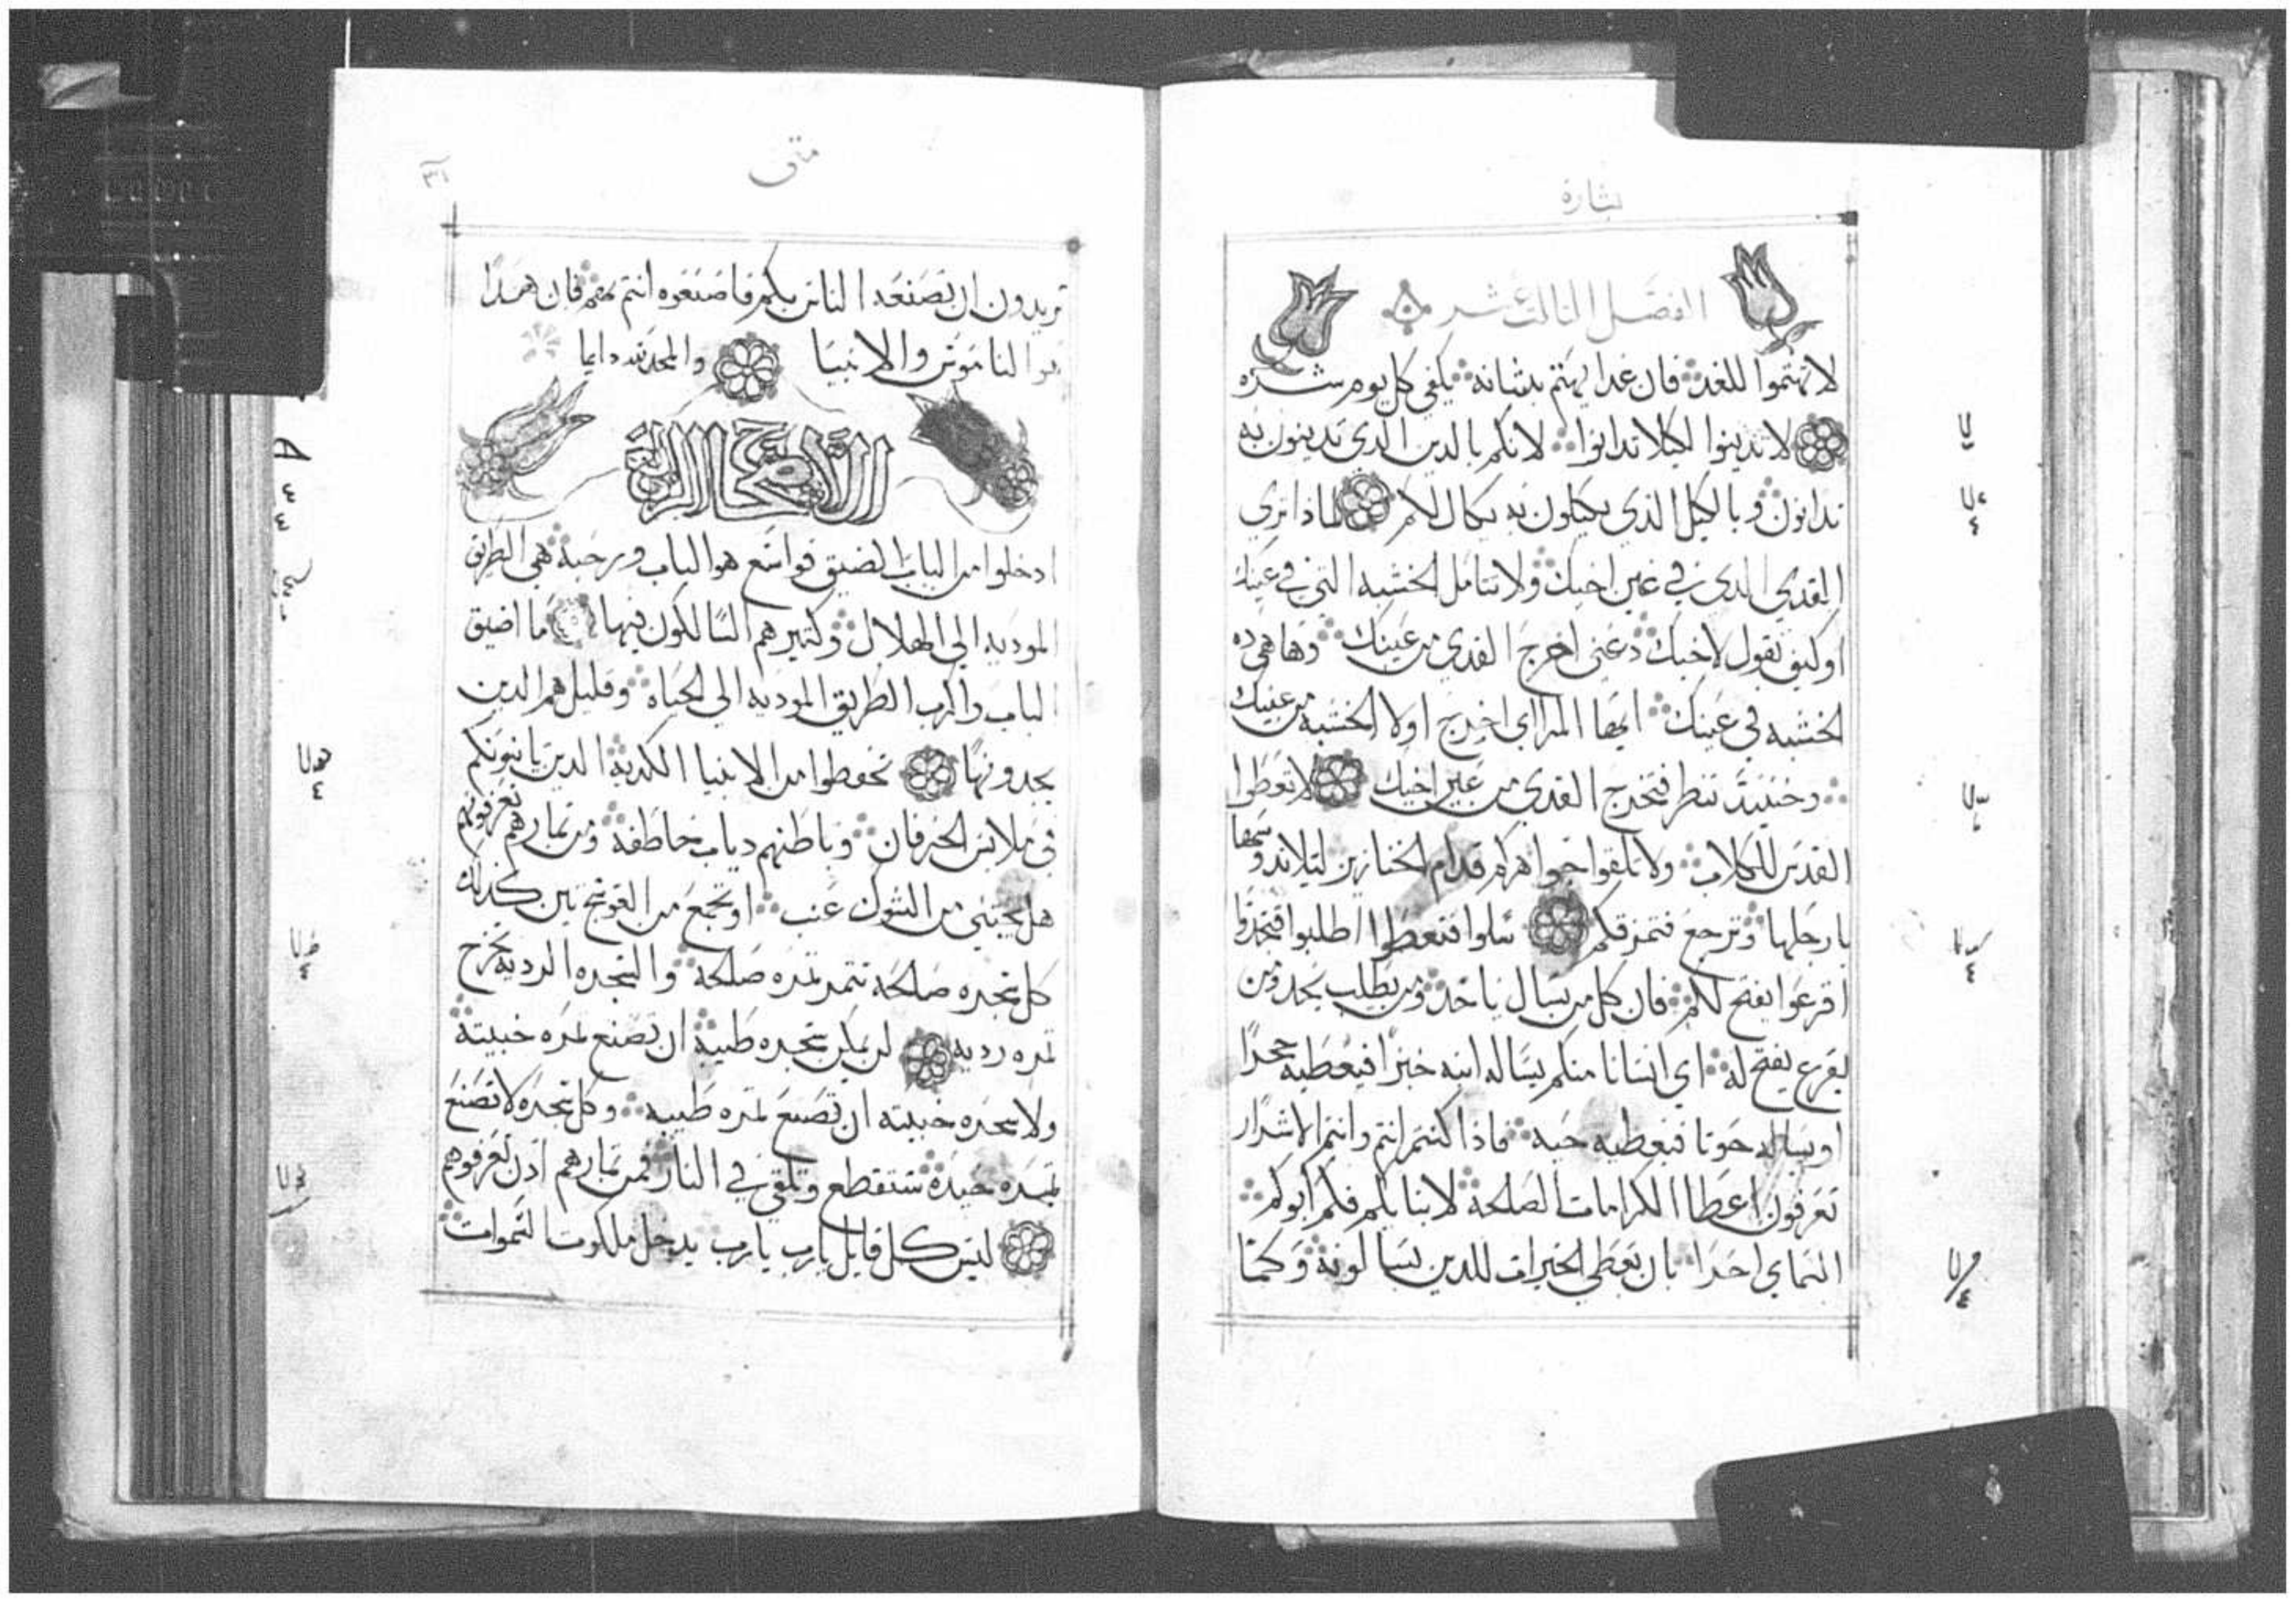 بشارة
الفصل الثالث عشر
لا تهتموا للغد فان غدا يهتم بشانه يكفي كل يوم شره
لا تدينوا لكيلا تدانوا لانكم بالدين الدي تدينون به
تدانون وبالكيل الذي تكيلون به يكال لكم لماذا تري
القدي الدي في عين اخيك ولا تتامل الخشبه التي في عينك
او كيف تقول لاخيك دعني اخرج القدي من عينك وها هي ده
الخشبه في عينك ايها المراي اخرج اولا الخشبه من عينيك
وحينيد تنظر فتخرج القدي من عين اخيك لا تعطوا
القدس للكلاب ولا تلقوا جواهركم قدام الخنازير ليلا تدوسها
بارجلها وترجع فتمزقكم سلوا فتعطوا اطلبوا فتجدوا
اقرعوا يفتح لكم فان كل من يسال ياخد ومن يطلب يجد ومن
يقرع يفتح له اي انسانا منكم يساله ابنه خبزا فيعطيه حجرا
او يساله حوتا فيعطيه حيه فاذا كنتم انتم وانتم الاشرار
تعرفون اعطا الكرامات الصلحه لابنايكم فكم ابوكم
السماي احرا بان يعطي الخيرات للدين يسالونه وكما
متي
٣١
تريدون ان تصنعه الناس بكم فاصنعوه انتم بهم فان هدا
هو الناموس والانبيا والمجد لله دايما
الاصحاح الرابع
ادخلوا من الباب الضيق فواسع هو الباب ورحبة هي الطريق
الموديه الي الهلال وكثير هم السالكون فيها ما اضيق
الباب واكرب الطريق الموديه الي الحياه وقليل هم الدين
يجدونها تحفظوا من الانبيا الكدبة الدين ياتونكم
في ملابس الخرفان وباطنهم دياب خاطفه ومن ثمارهم تعرفونهم
هل يجتني من الشوك عنب او تجمع من العوسج تين كدلك
كل شجره صالحه تتمر ثمره صلحة والشجره الرديه تخرج
ثمره رديه لن يمكن شجره طيبة ان تصنع ثمره خبيثة
ولا شجره خبيثه ان تصنع ثمره طيبه وكل شجره لا تصنع
ثمره جيدة ستقطع وتلقي في النار فمن ثمارهم ادن تعرفوهم
ليس كل قايل يارب يارب يدخل ملكوت السموات